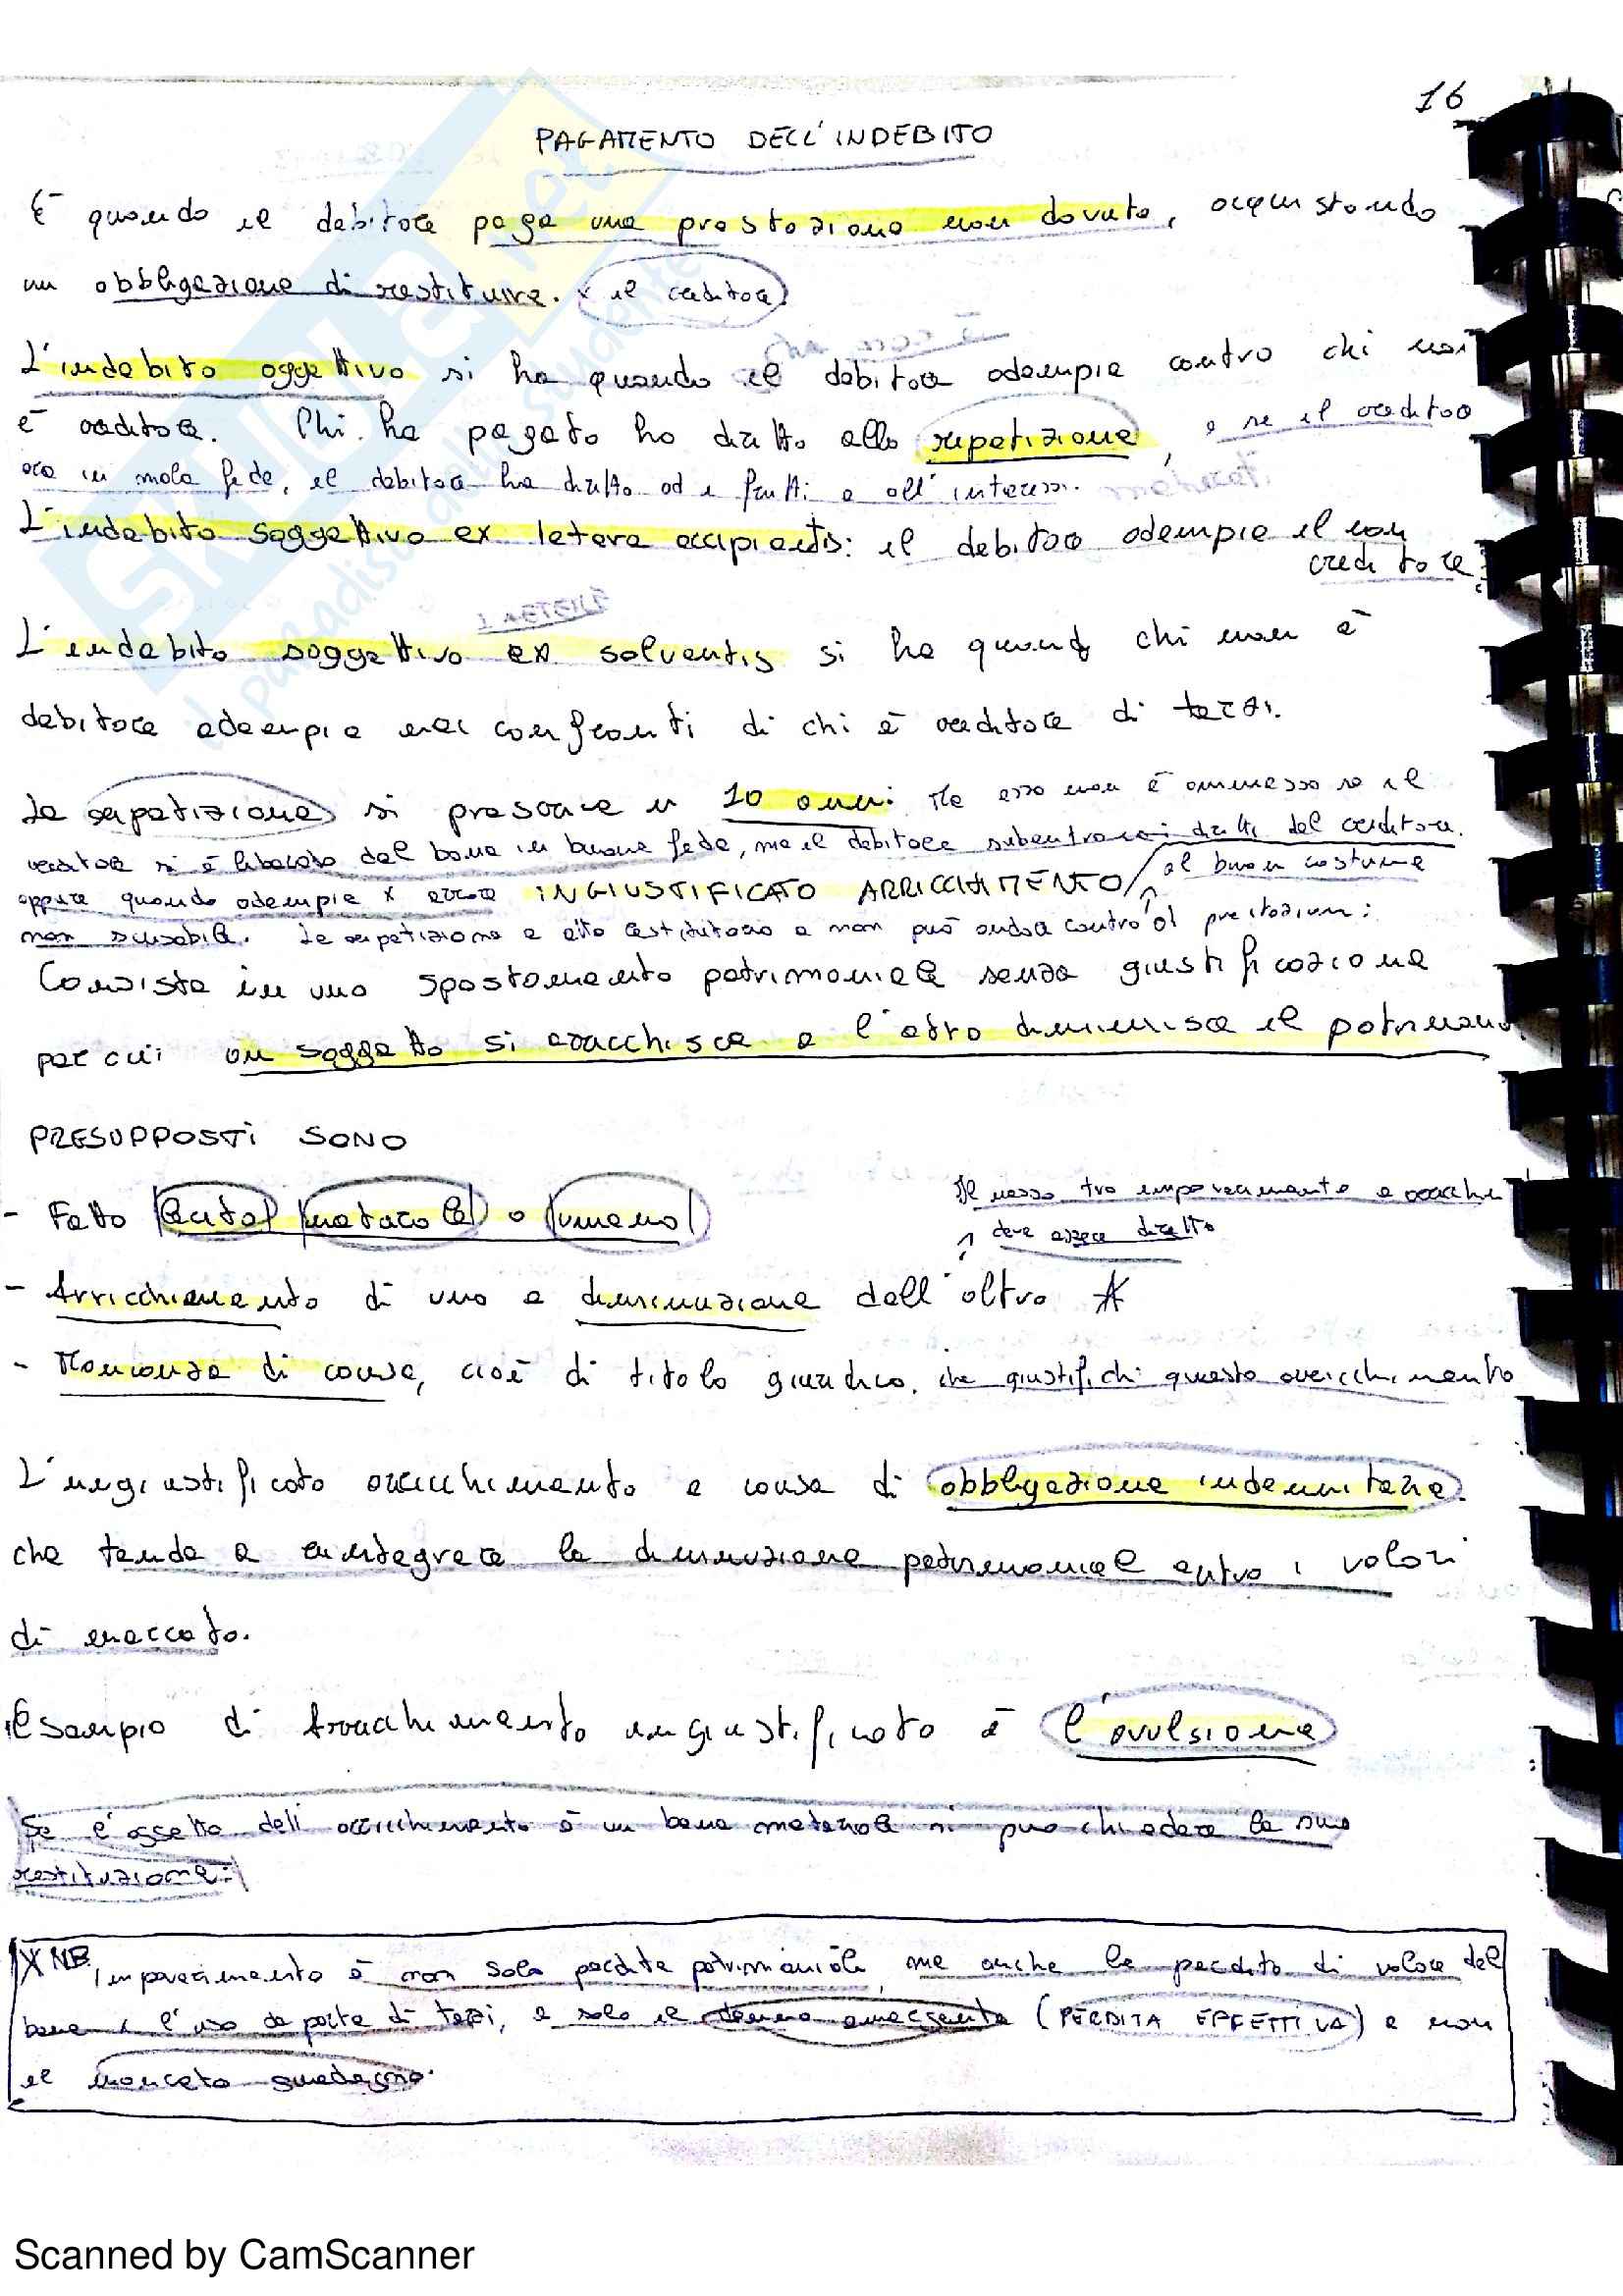 16
PAGAMENTO DELL'INDEBITO
È quando il debitore paga una prestazione non dovuta, acquistando
un obbligazione di restituire. x il creditore
L'indebito oggettivo si ha quando il debitore adempie contro chi non
è creditore. Chi ha pagato ha diritto alla repetizione, e se il creditore
era in mala fede, il debitore ha diritto ad i frutti e all'interessi.
L'indebito soggettivo ex latere accipientis: il debitore adempie il non
creditore
L'indebito soggettivo ex solventis si ha quand chi non è
debitore adempie nei confronti di chi è creditore di terzi.
La repetizione si prescrive in 10 anni. Ma essa non è ammessa se il
creditore si è liberato del bene in buona fede, ma il debitore subentra nei diritti del creditore.
oppure quando adempie x errore INGIUSTIFICATO ARRICCHIMENTO al buon costume
non scusabile. La repetizione e atto restitutorio e non può andare contro prestazioni:
Consiste in uno spostamento patrimoniale senza giustificazione
per cui un soggetto si arricchisce e l'altro diminuisce il patrimonio
PRESUPPOSTI SONO
- Fatto lecito naturale o umano
Il nesso tra impoverimento e arricchi
deve essere diretto
- Arricchimento di uno e diminuzione dell'altro *
- Mancanza di causa, cioè di titolo giuridico, che giustifichi questo arricchimento
L'ingiustificato arricchimento è causa di obbligazione indennitaria
che tende a reintegrare la diminuzione patrimoniale entro i valori
di mercato.
Esempio di Arricchimento ingiustificato è l'avulsione
Se l'oggetto dell'arricchimento è un bene materiale si può chiedere la sua
restituzione.
X NB. impoverimento è non solo perdita patrimoniale, ma anche la perdita di valore del
bene x l'uso da parte di terzi, e solo il danno emergente (PERDITA EFFETTIVA) e non
il mancato guadagno.
SKUOLA.net
il paradiso dello studente
Scanned by CamScanner